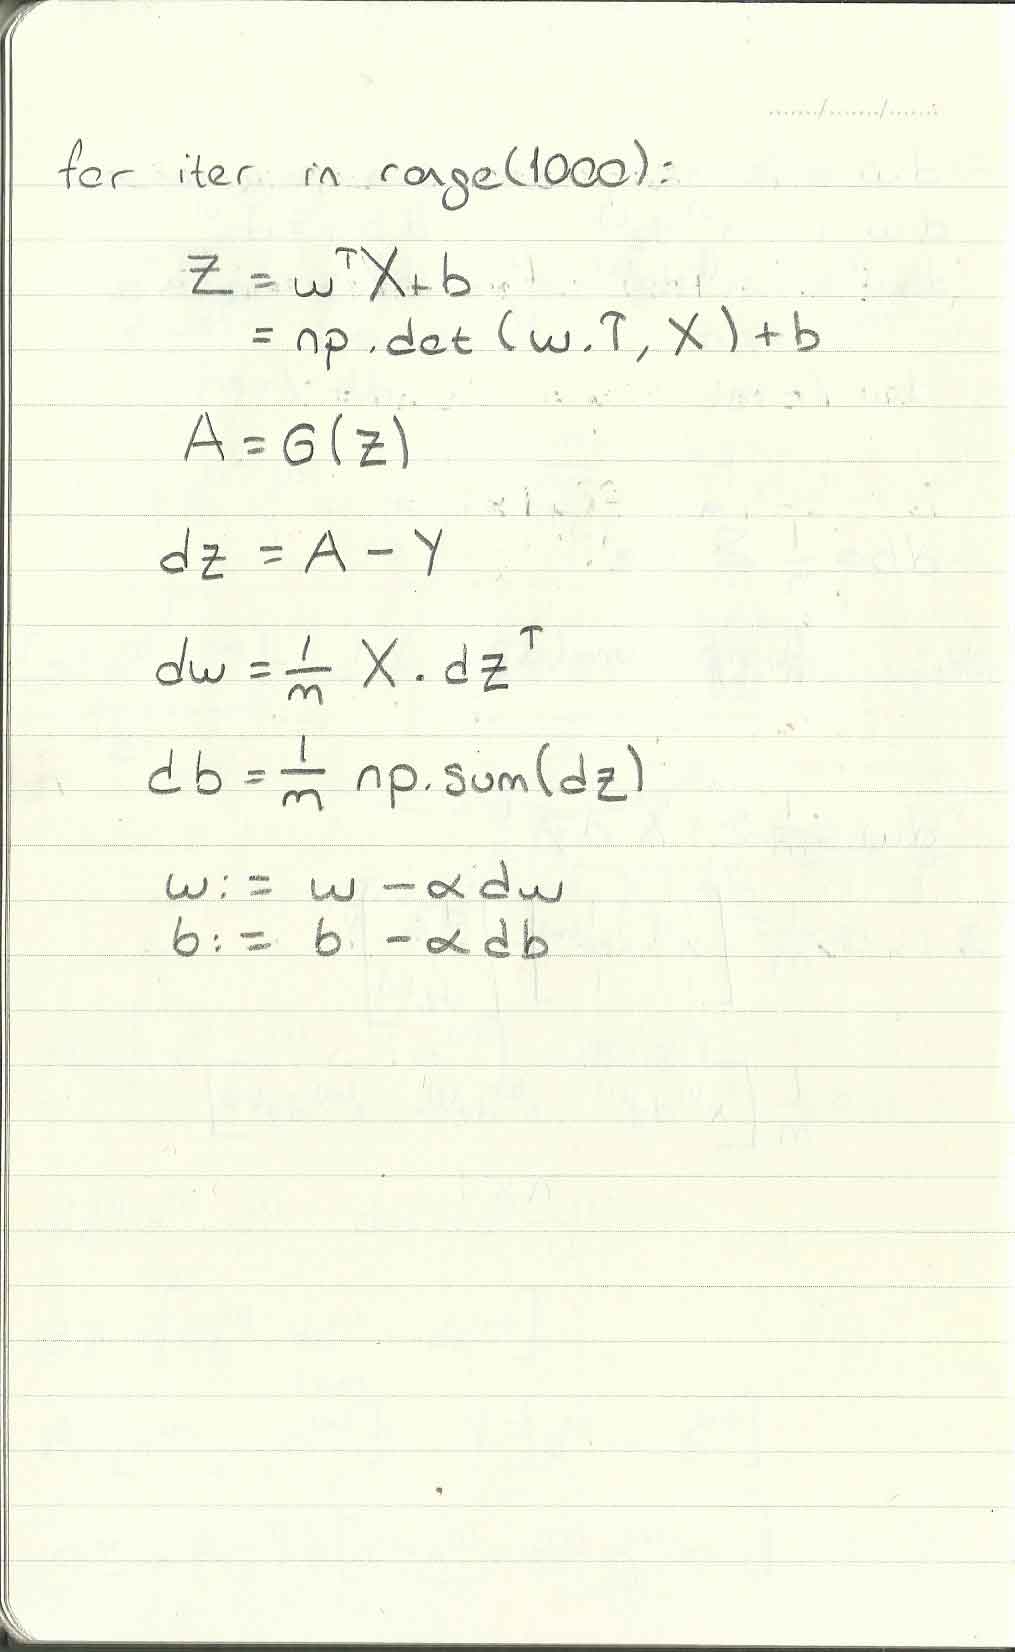 for iter in range(1000):
Z = wᵀX + b
= np.dot(w.T, X) + b
A = σ(Z)
dz = A - Y
dw = 1/m X . dzᵀ
db = 1/m np.sum(dz)
w := w - α dw
b := b - α db